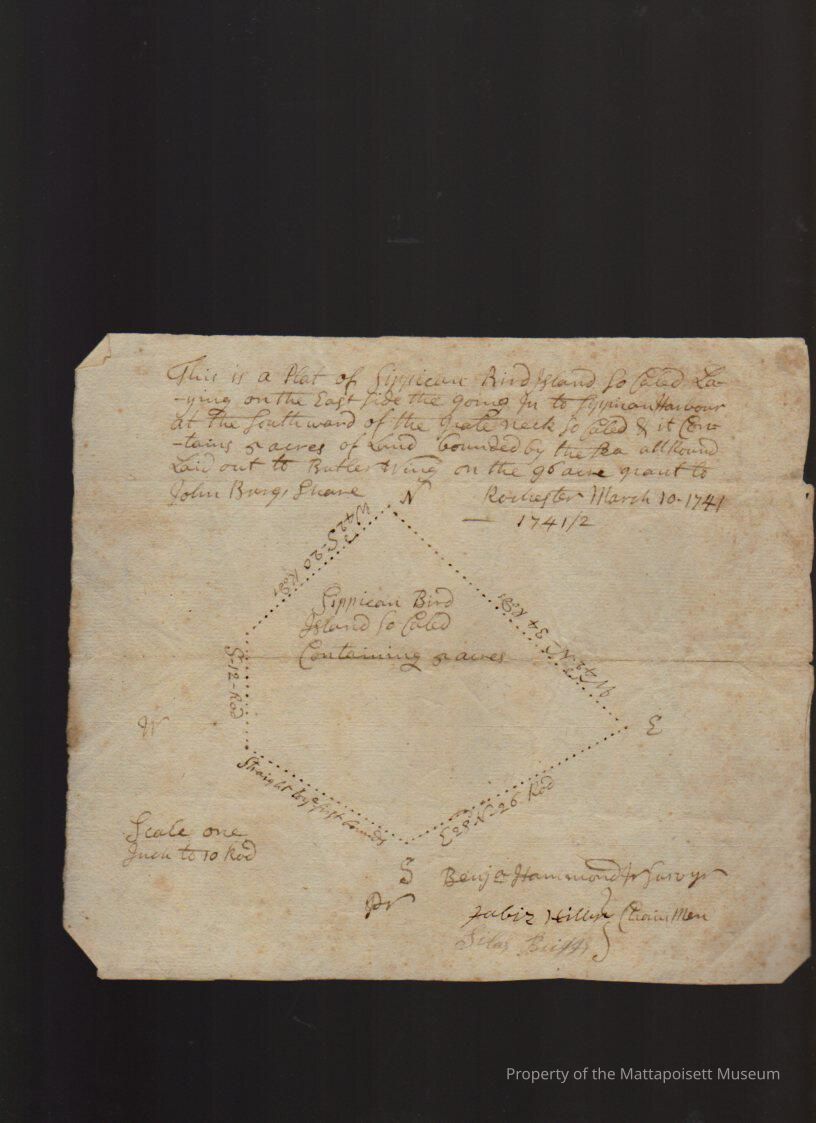 This is a Plat of Sippican Bird Island So Caled La-
-ying on the East side the going In to Sippican Harbour
at the Southward of the Grate neck So Caled & it Con-
-tains 5 acres of Land bounded by the Sea all Round
Laid out to Butler Wing on the 96 acre grant to
John Burgs Share
Rochester March 10-1741
1741/2
N
W 42 S-20 Rods
W 42 N 34 Rods
Sippican Bird
Island So Caled
Containing 5 acres
S-12-Rod
W
E
Straight to first bounds
E 28 N-26 Rod
Scale one
Inch to 10 Rod
S
Pr
Benja Hammond Jr Survyr
Jabiz Hiller
Chain Men
Silas Briggs
Property of the Mattapoisett Museum